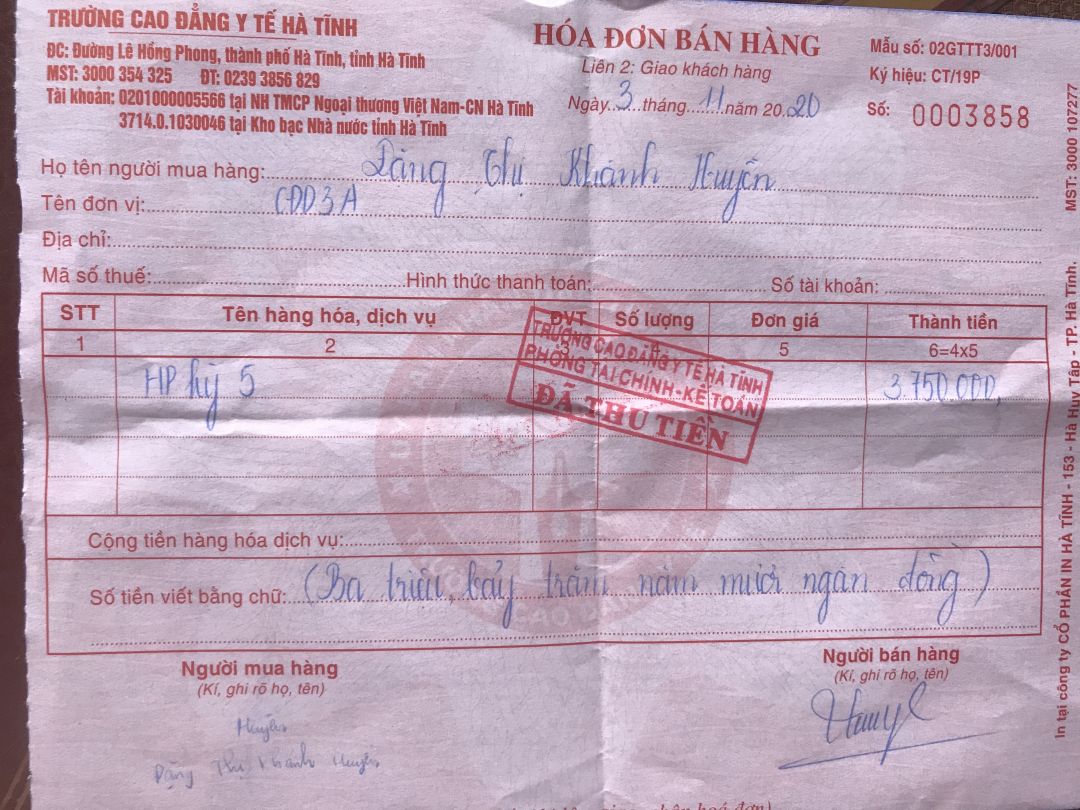 TRƯỜNG CAO ĐẲNG Y TẾ HÀ TĨNH
ĐC: Đường Lê Hồng Phong, thành phố Hà Tĩnh, tỉnh Hà Tĩnh
MST: 3000 354 325 ĐT: 0239 3856 829
Tài khoản: 0201000005566 tại NH TMCP Ngoại thương Việt Nam-CN Hà Tĩnh
3714.0.1030046 tại Kho bạc Nhà nước tỉnh Hà Tĩnh
HÓA ĐƠN BÁN HÀNG
Liên 2: Giao khách hàng
Ngày 3 tháng 11 năm 2020
Mẫu số: 02GTTT3/001
Ký hiệu: CT/19P
Số: 0003858
Họ tên người mua hàng: Đặng Thị Khánh Huyền
Tên đơn vị: CĐD3A
Địa chỉ:
Mã số thuế: Hình thức thanh toán: Số tài khoản:
STT Tên hàng hóa, dịch vụ ĐVT Số lượng Đơn giá Thành tiền
1 2 3 4 5 6=4x5
HP kỳ 5 3.750.000,
TRƯỜNG CAO ĐẲNG Y TẾ HÀ TĨNH
PHÒNG TÀI CHÍNH-KẾ TOÁN
ĐÃ THU TIỀN
Cộng tiền hàng hóa dịch vụ:
Số tiền viết bằng chữ: (Ba triệu, bảy trăm năm mươi ngàn đồng)
Người mua hàng
(Kí, ghi rõ họ, tên)
Huyền
Đặng Thị Khánh Huyền
Người bán hàng
(Kí, ghi rõ họ, tên)
MST: 3000 107277
In tại công ty CỔ PHẦN IN HÀ TĨNH - 153 - Hà Huy Tập - TP. Hà Tĩnh.